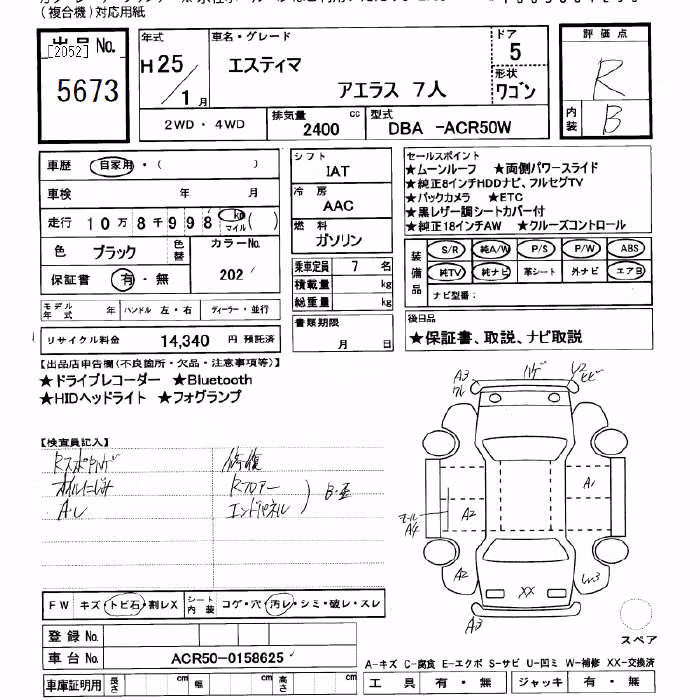 (複合機)対応用紙
出品 No.
[2052]
5673
年式
H25/1月
車名・グレード
エスティマ
アエラス 7人
ドア
5
形状
ワゴン
評価点
R
内装
B
2WD・4WD
排気量
2400 cc
型式
DBA -ACR50W
車歴 自家用・( )
車検 年 月
走行 10万8千998 km マイル( )
色 ブラック 色替 カラーNo. 202
保証書 有・無
モデル年式 年 ハンドル 左・右 ディーラー・並行
リサイクル料金 14,340 円 預託済
シフト
IAT
冷房
AAC
燃料
ガソリン
乗車定員 7 名
積載量 kg
総重量 kg
書類期限
月 日
セールスポイント
★ムーンルーフ ★両側パワースライド
★純正8インチHDDナビ、フルセグTV
★バックカメラ ★ETC
★黒レザー調シートカバー付
★純正18インチAW ★クルーズコントロール
装備品
S/R 純A/W P/S P/W ABS
純TV 純ナビ 革シート 外ナビ エアB
ナビ型番:
後日品
★保証書、取説、ナビ取説
【出品店申告欄(不良箇所・欠品・注意事項等)】
★ドライブレコーダー ★Bluetooth
★HIDヘッドライト ★フォグランプ
【検査員記入】
修復
オイルにじみ Rフロアー
A・L エンドパネル
B・歪
A3
ハゲ
A1
A2
A4
A2
XX
A3
スペア
FW キズ・トビ石・割レX シート内装 コゲ・穴・汚レ・シミ・破レ・スレ
登録 No.
車台 No. ACR50-0158625
車庫証明用 長さ cm 幅 cm 高さ cm
A-キズ C-腐食 E-エクボ S-サビ U-凹ミ W-補修 XX-交換済
工具 有・無 ジャッキ 有・無